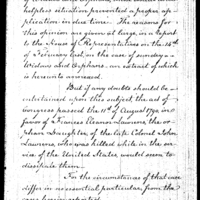 helpless situation permitted a proper ap-
plication in due time. The reasons for
this opinion are given at large, in a Report
to the House of Representatives on the 18th
of February last on the case of sundry
Widows and Orphans, an extract of which
is hereunto annexed.
But if any doubts should be
entertained upon this subject, the act of
Congress passed the 11th of August 1790, in
favor of Frances Eleanor Laurens, the or-
phan Daughter of the late Colonel John
Laurens, who was killed while in the ser-
vice of the United States, would seem to
dissipate them.
For the circumstances of that case
differ in no essential particular from the